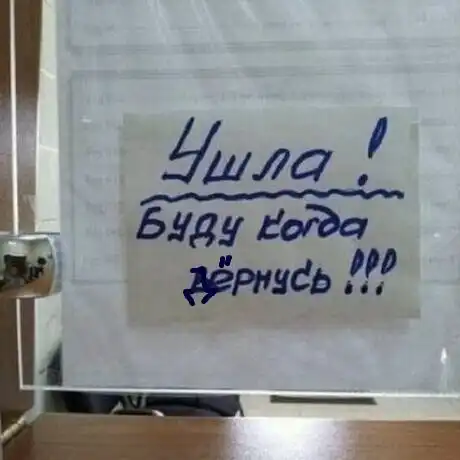 Ушла!
Буду когда
дёрнусь!!!